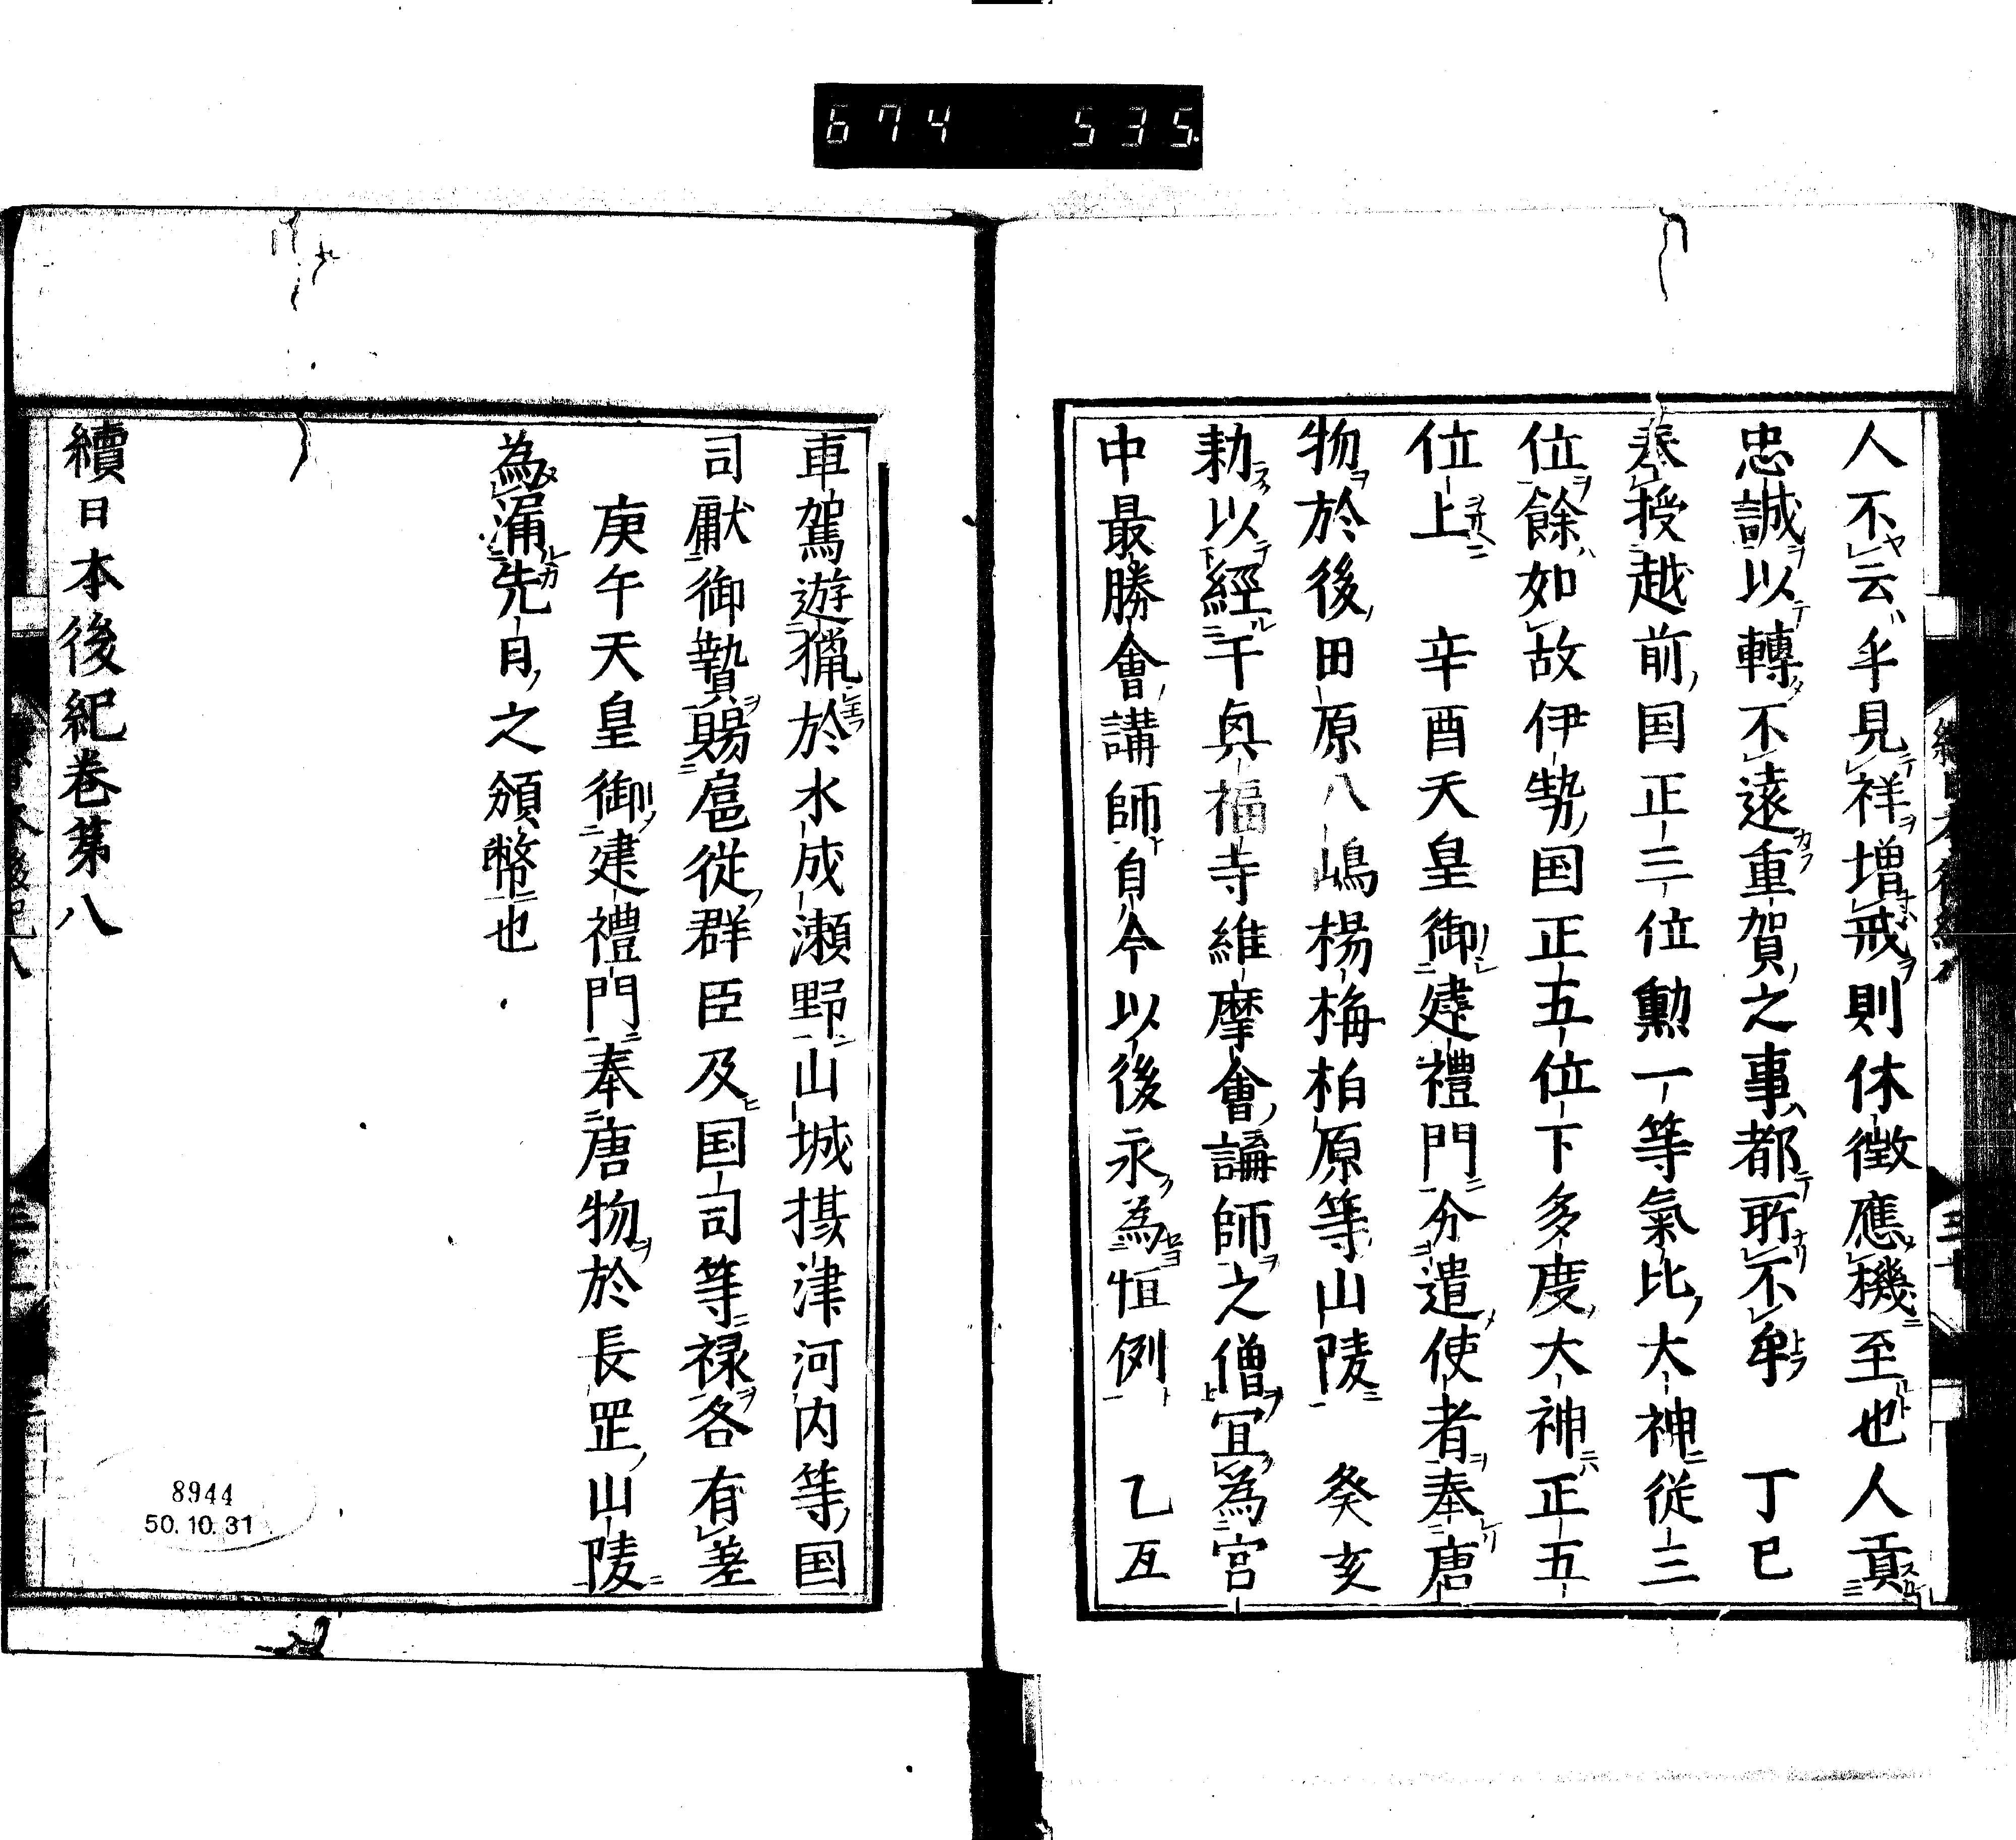 674 535
人不云乎見祥増戒則休徴應機至也人貢
忠誠以轉不遠重賀之事都所不牟　丁巳
奉授越前国正三位勲一等氣比大神従三
位餘如故伊勢国正五位下多度大神正五
位上　辛酉天皇御建禮門分遣使者奉唐
物於後田原八嶋楊梅柏原等山陵　癸亥
勅以經干興福寺維摩會講師之僧冝為宮
中最勝會講師自今以後永為恒例　乙亥
車駕遊獵於水成瀬野山城摂津河内等国
司獻御贄賜扈従群臣及国司等禄各有差
庚午天皇御建禮門奉唐物於長罡山陵
為漏先日之頒幣也
續日本後紀巻第八
8944
50.10.31